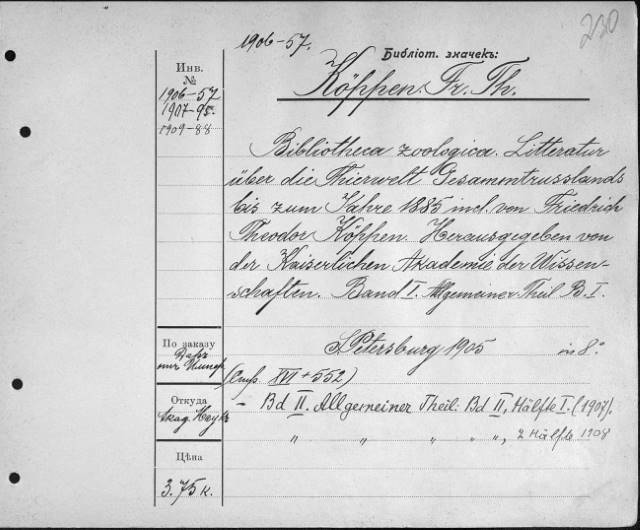 230
1906-57.
Библіот. значекъ:
Инв.
№
1906-57
1907-95.
1909-88
Köppen. Fr. Th.
Bibliotheca zoologica. Litteratur
über die Thierwelt Gesammtrusslands
bis zum Jahre 1885 incl. von Friedrich
Theodor Köppen. Herausgegeben von
der Kaiserlichen Akademie der Wissen-
schaften. Band I. Allgemeiner Theil B. I.
По заказу
St Petersburg 1905 in 8°
(стр. XVI + 552)
Откуда
Акад. Наукъ
- Bd II. Allgemeiner Theil: Bd II, Hälfte I. (1907).
" " " " ", 2 Hälfte 1908
Цѣна
3.75 к.